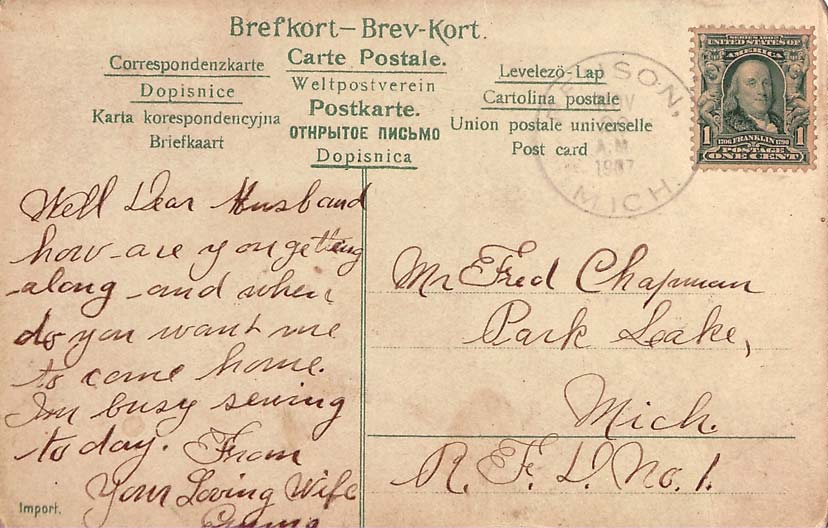 Brefkort–Brev-Kort.
Correspondenzkarte Carte Postale. Levelező-Lap
Dopisnice Weltpostverein Cartolina postale
Karta korespondencyjna Postkarte. Union postale universelle
Briefkaart ОТКРЫТОЕ ПИСЬМО Post card
Dopisnica
MICH.
A.M.
1907
SERIES 1902
UNITED STATES OF
AMERICA
1706 FRANKLIN 1790
1 POSTAGE 1
ONE CENT
Well Dear Husband
how are you getting
along and when
do you want me
to come home.
Im busy sewing
to day. From
Your Loving Wife
Emma
Mr Fred Chapman
Park Lake,
Mich.
R. F. D. No. 1.
Import.